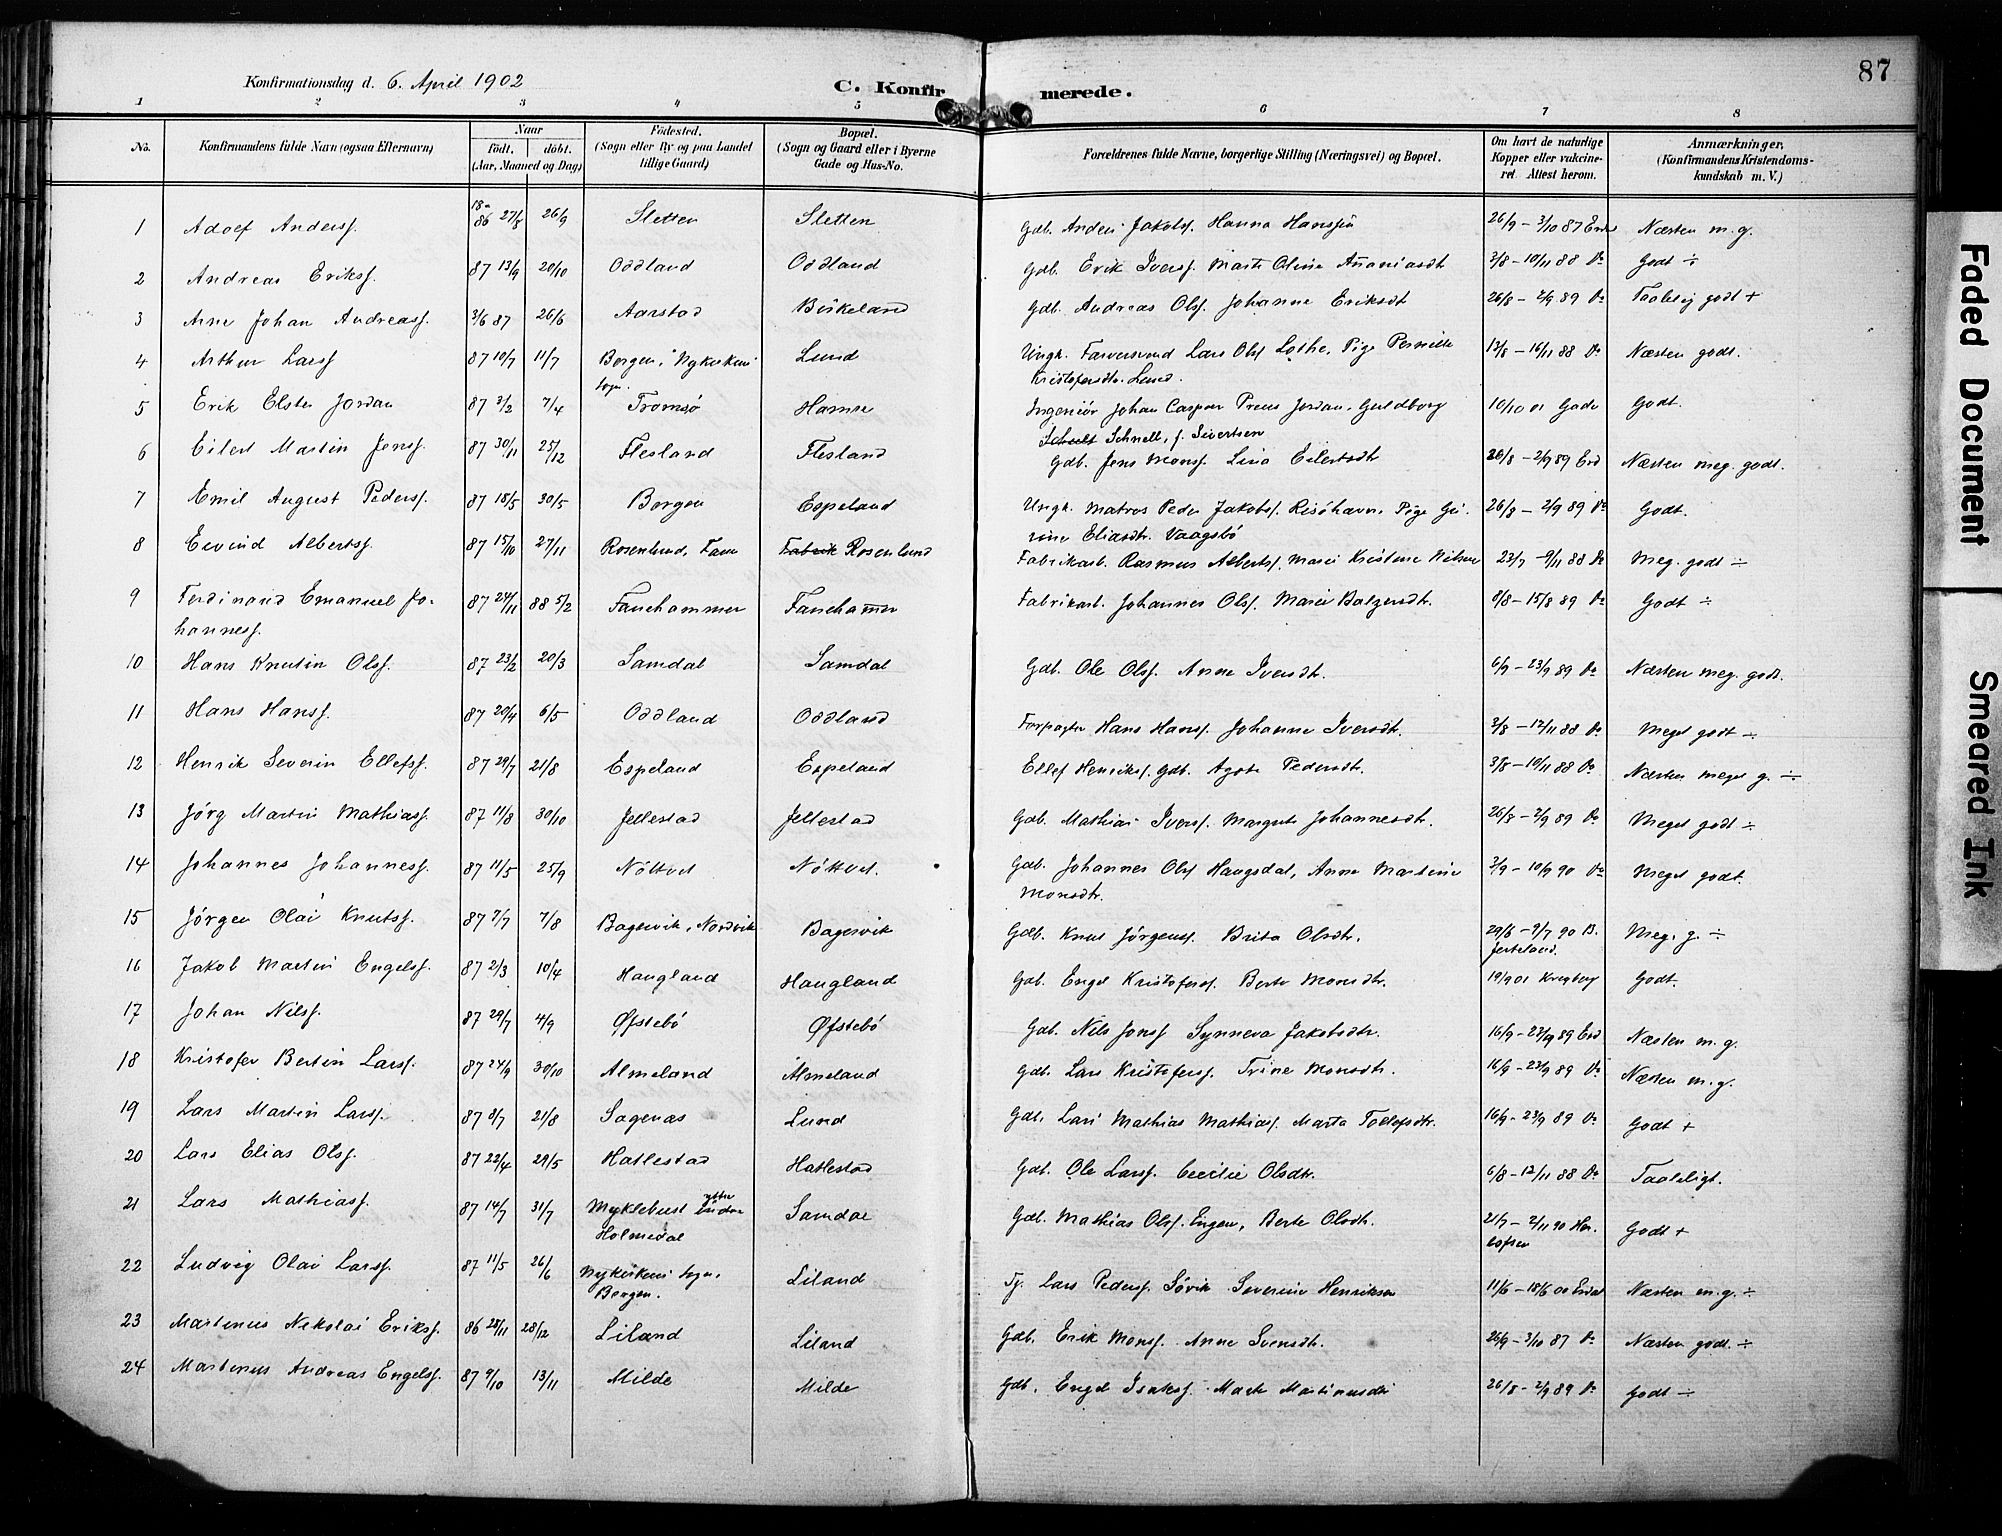 87
Konfirmationsdag d. 6. April 1902
C. Konfirmerede.
1 2 3 4 5 6 7 8
No. Konfirmandens fulde Navn (ogsaa Efternavn) Naar født. døbt. (Aar, Maaned og Dag) Fødested. (Sogn eller By og paa Landet tillige Gaard) Bopæl. (Sogn og Gaard eller i Byerne Gade og Hus-No. Forældrenes fulde Navne, borgerlige Stilling (Næringsvei) og Bopæl. Om havt de naturlige Kopper eller vakcineret. Attest herom. Anmærkninger, (Konfirmandens Kristendomskundskab m. V.)
1 Adolf Anderss. 86 27/8 26/9 Sletten Sletten Gdb. Anders Jakobs. Hanna Hansdtr 26/9 – 3/10 87 Næsten m. g.
2 Andreas Erikss. 87 13/9 20/10 Oddland Oddland Gdb. Erik Iverss. Marte Oline Ananiasdtr 3/8 – 10/11 88 Do Godt ÷
3 Arne Johan Andreass. 3/6 87 26/6 Aarstad Birkeland Gdb. Andreas Olss. Johanne Eriksdtr 26/8 – 2/9 89 Do Taalelig godt +
4 Arthur Larss 87 10/7 11/7 Bergen, Nykirkens Sogn. Lund Ungk. Farversvend Lars Olss Lothe, Pige Pernille
Kristofersdtr. Lund. 13/8 – 16/11 88 Do Næsten godt.
5 Erik Elster Jordan 87 3/2 7/4 Tromsø Hamre Ingeniør Johan Caspar Preus Jordan, Guldborg
Schnell, f. Sivertsen 10/10 01 Gade Godt.
6 Eilert Martin Jenss. 87 30/11 25/12 Flesland Flesland Gdb. Jens Monss. Lisa Eilertsdtr 26/8 – 2/9 89 Næsten meg. godt.
7 Emil August Pederss. 87 18/5 30/5 Bergen Espeland Ungk. Matros Peder Jakobss. Risøhavn, Pige
Eliasdtr. Vaagsbø 26/8 – 2/9 89 Do Godt.
8 Eivind Albertss. 87 15/10 27/11 Rosenlund, Fane Fabrik Rosenlund Fabrikarb. Rasmus Albertss. Marie Kristine Nilsen 23/7 – 9/11 88 Do Meg. godt ÷
9 Ferdinand Emanuel Jo-
hanness. 87 24/11 88 5/2 Fanehammer Fanehamer Fabrikarb. Johannes Olss. Marie Balzersdtr. 8/8 – 15/8 89 Do Godt ÷
10 Hans Knutin Olss. 87 23/2 20/3 Samdal Samdal Gdb. Ole Olss. Anne Iversdtr. 6/9 – 23/9 89 Do Næsten meg. godt.
11 Hans Hanss. 87 20/4 6/5 Oddland Oddland Forpagter Hans Hanss. Johanne Iversdtr. 3/8 – 12/11 88 Do Meget godt ÷
12 Henrik Severin Ellefss. 87 29/7 21/8 Espeland Espeland Ellef Henrikss. Gdb. Agote Pedersdtr. 3/8 – 10/11 88 Do Næsten meget g. ÷
13 Jørg Martin Mathiass. 87 11/8 30/10 Jellestad Jellestad Gdb. Mathias Iverss. Margrete Johannesdtr. 26/8 – 2/9 89 Do Meget godt ÷
14 Johannes Johanness. 87 11/5 25/9 Nøttvet Nøttvet. Gdb. Johannes Olss Haugsdal, Anne Martine
Monsdtr. 3/9 – 10/9 90 Do Meget godt.
15 Jørgen Olai Knutss. 87 7/7 7/8 Bagervik, Nordvik Bagervik Gdb. Knut Jørgenss. Brita Olsdtr. 29/6 – 9/7 90 B. Meg. g. ÷
16 Jakob Martin Engelss. 87 2/3 10/4 Haugland Haugland Gdb. Engel Kristoferss. Berte Monsdtr. 19/9 01 Krogberg Godt.
17 Johan Nilss. 87 29/7 4/9 Øfstebø Øfstebø Gdb. Nils Jonss Synneva Jakobsdtr. 16/9 – 23/9 89 Næsten m. g.
18 Kristofer Bertin Larss. 87 24/9 30/10 Almeland Almeland Gdb. Lars Kristoferss. Trine Monsdtr. 16/9 – 23/9 89 Do Næsten m. g.
19 Lars Martin Larss. 87 8/7 21/8 Sagenæs Lund Gdb. Lars Mathias Mathiass. Marta Tollefsdtr. 16/9 – 23/9 89 Do Godt +
20 Lars Elias Olss. 87 22/4 29/5 Hatlestad Hatlestad Gdb. Ole Larss. Cecilie Olsdtr. 6/8 – 12/11 88 Do Taaleligt.
21 Lars Mathiass. 87 14/7 31/7 Myklebust ytre indre
Holmedal Samdal Gdb. Mathias Olss. Engen, Berte Olsdtr. 21/7 – 2/11 90 Godt +
22 Ludvig Olai Larss. 87 11/5 26/6 Nykirkens Sogn,
Bergen. Liland Tj. Lars Pederss. Søvik Severine Henriksen 11/6 – 18/6 00 Næsten m. g. ÷
23 Martinus Nikolai Erikss. 86 28/11 28/12 Liland Liland Gdb. Erik Monss. Anne Svensdtr. 26/9 – 3/10 87 Do Næsten godt. ÷
24 Martinus Andreas Engelss. 87 9/10 13/11 Milde Milde Gdb. Engel Isakss. Marte Martinusdtr 26/8 – 2/9 89 Do Godt ÷
Faded Document
Smeared Ink